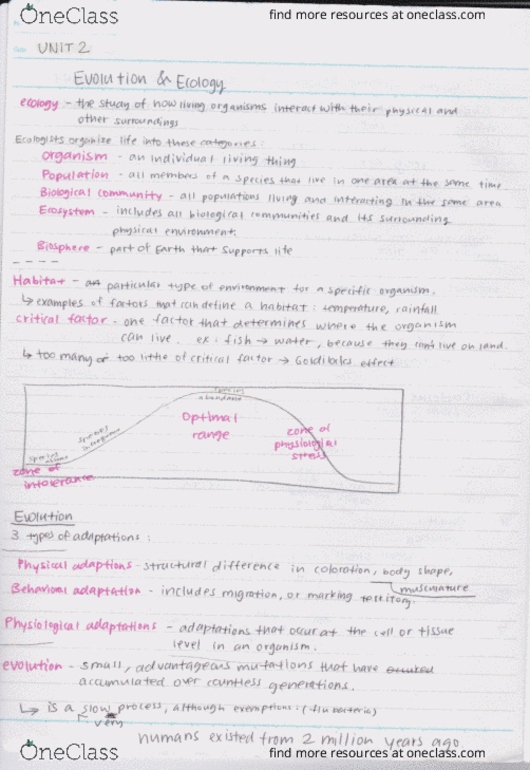 OneClass
find more resources at oneclass.com
UNIT 2
Evolution & Ecology
ecology - the study of how living organisms interact with their physical and
other surroundings
Ecologists organize life into these categories:
organism - an individual living thing
Population - all members of a species that live in one area at the same time
Biological community - all populations living and interacting in the same area
Ecosystem - includes all biological communities and its surrounding
physical environment.
Biosphere - part of Earth that supports life
Habitat - an particular type of environment for a specific organism.
↳ examples of factors that can define a habitat: temperature, rainfall
critical factor - one factor that determines where the organism
can live. ex: fish → water, because they can't live on land.
↳ too many or too little of critical factor → Goldilocks effect
species
abundant
Optimal
range
zone of
physiological
stress
species
infrequent
species
zone of
intolerance
Evolution
3 types of adaptations:
Physical adaptions - structural difference in coloration, body shape,
musculature
Behavioral adaptation - includes migration, or marking territory.
Physiological adaptations - adaptations that occur at the cell or tissue
level in an organism.
evolution - small, advantageous mutations that have
accumulated over countless generations.
↳ is a slow process, although exemptions: (flu bacteria)
very
humans existed from 2 million years ago
OneClass
find more resources at oneclass.com